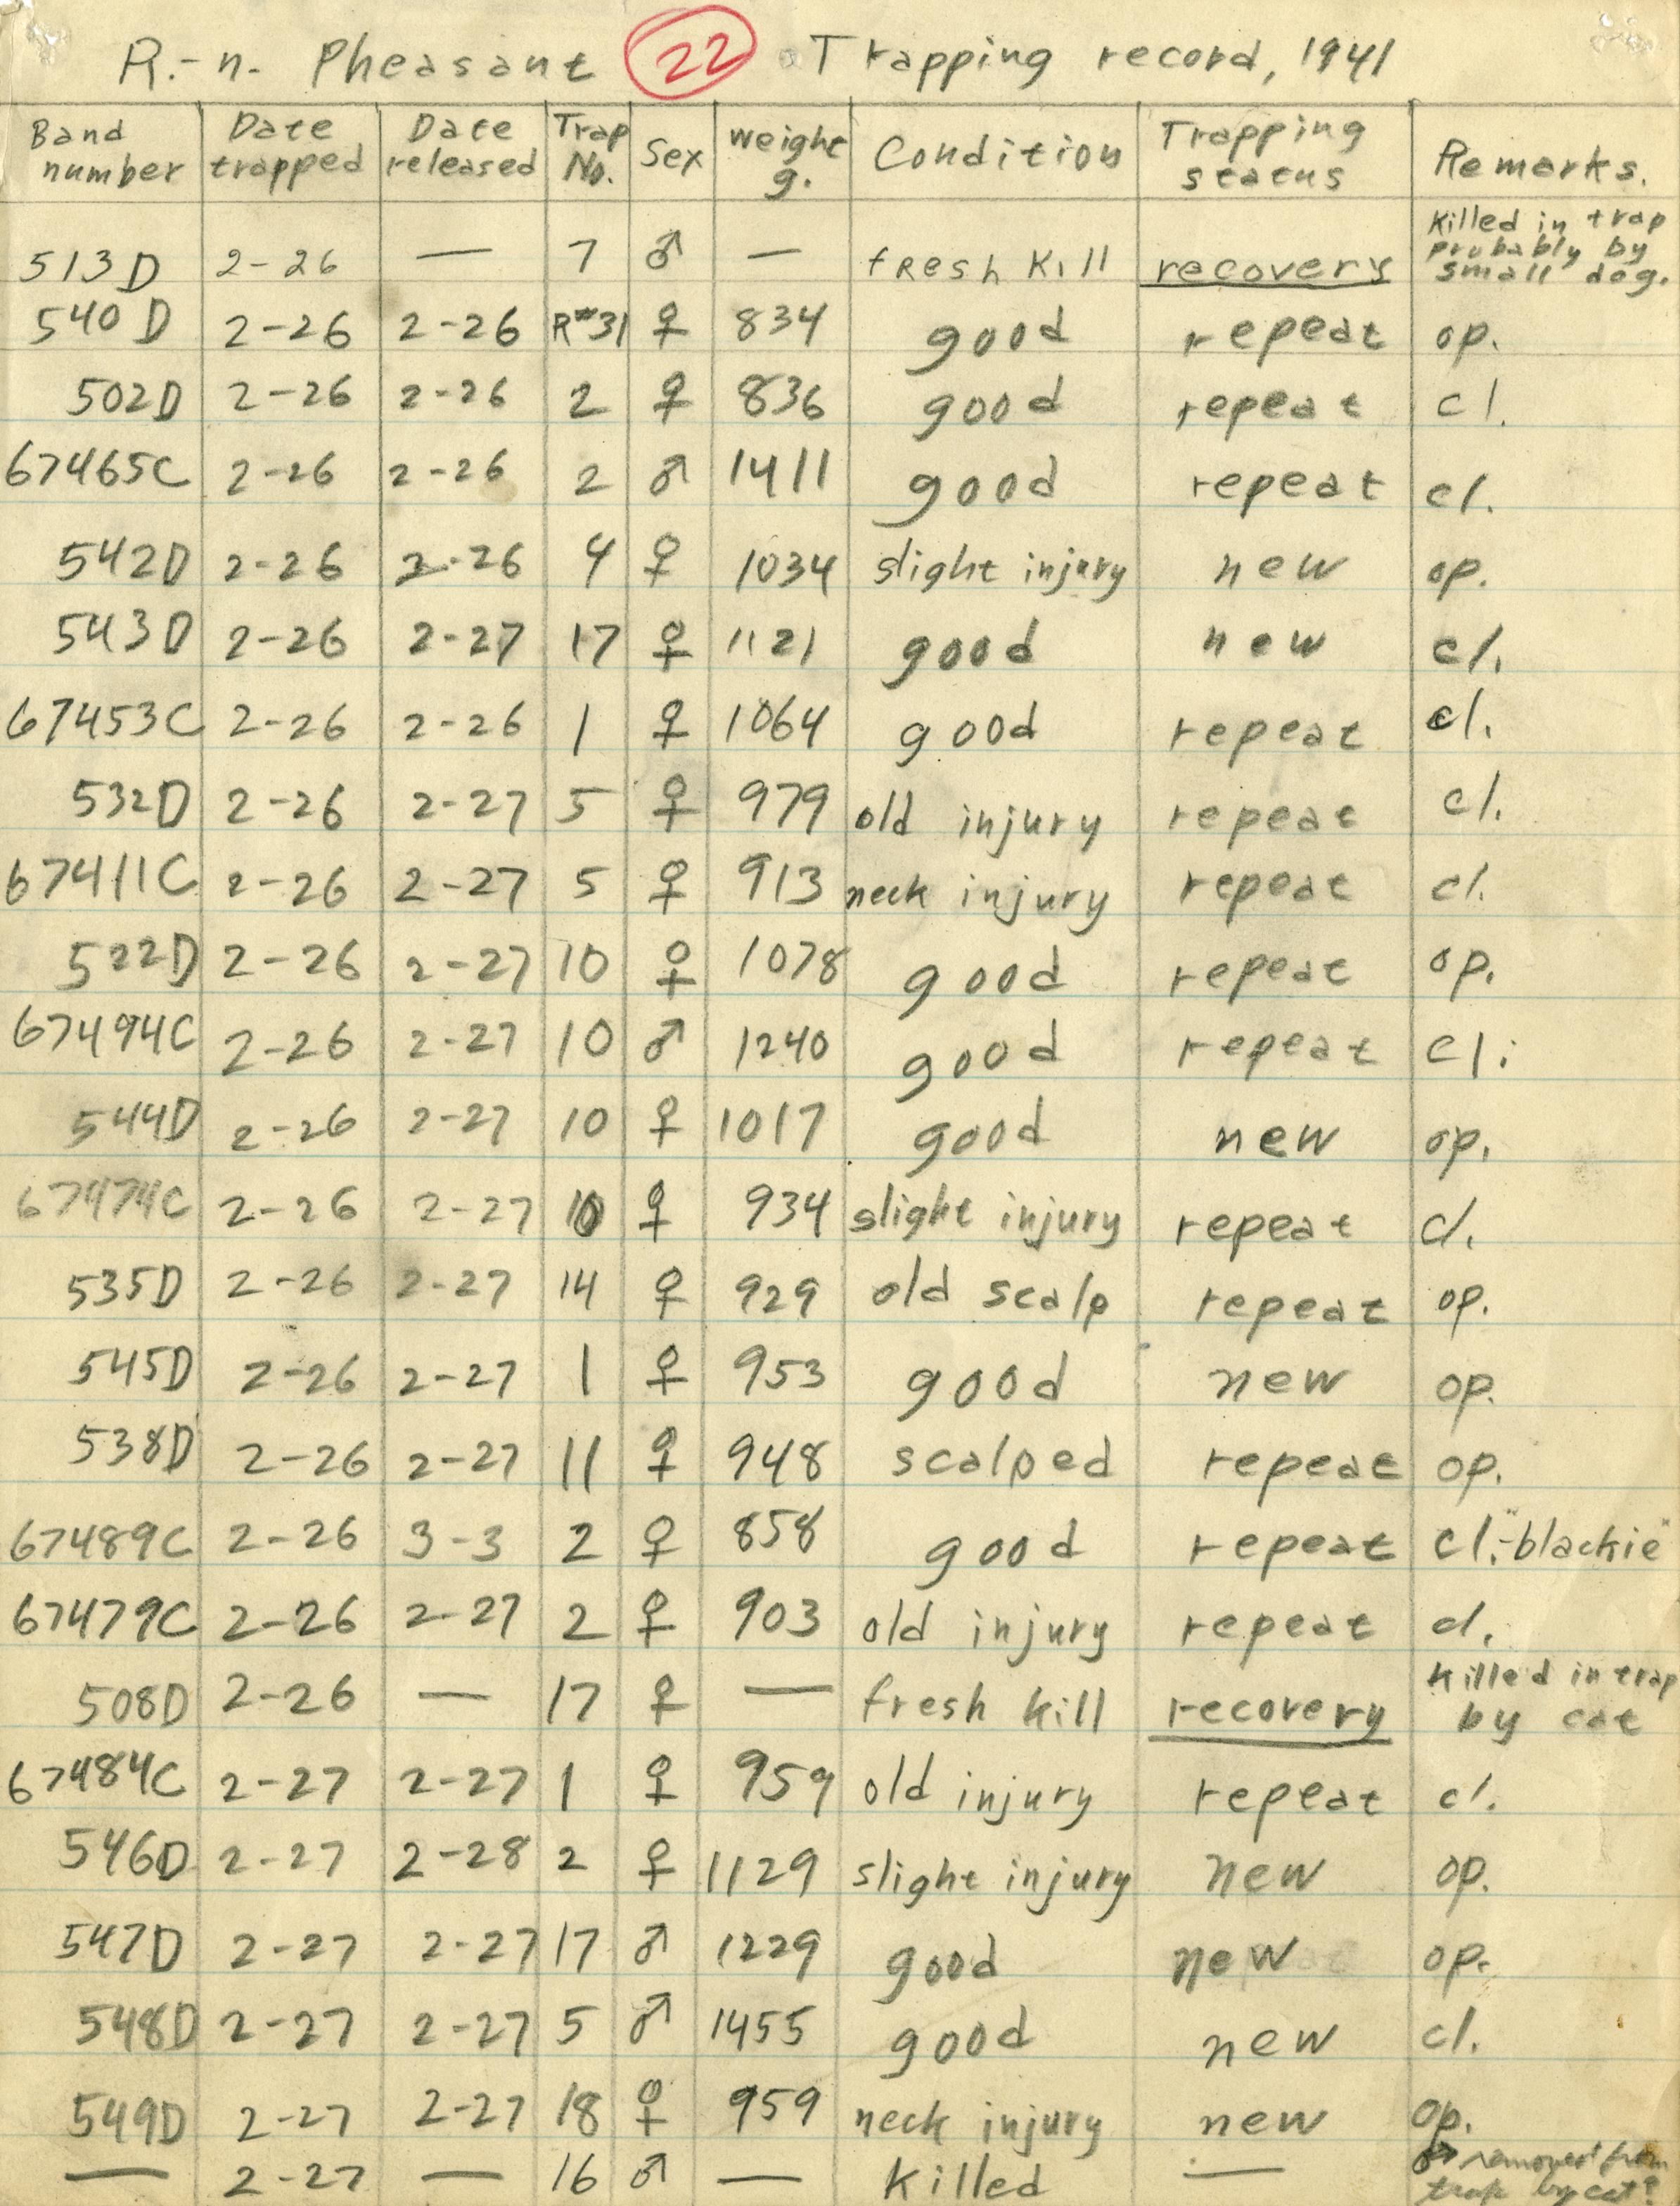 R.-n. Pheasant 22 Trapping record, 1941
Band number Date trapped Date released Trap No. Sex Weight g. Condition Trapping status Remarks.
513D 2-26 — 7 ♂ — fresh kill recovery Killed in trap probably by small dog.
540D 2-26 2-26 R#31 ♀ 834 good repeat op.
502D 2-26 2-26 2 ♀ 836 good repeat cl.
67465C 2-26 2-26 2 ♂ 1411 good repeat cl.
542D 2-26 2-26 4 ♀ 1034 slight injury new op.
543D 2-26 2-27 17 ♀ 1121 good new cl.
67453C 2-26 2-26 1 ♀ 1064 good repeat cl.
532D 2-26 2-27 5 ♀ 979 old injury repeat cl.
67411C 2-26 2-27 5 ♀ 913 neck injury repeat cl.
522D 2-26 2-27 10 ♀ 1078 good repeat op.
67494C 2-26 2-27 10 ♂ 1240 good repeat cl.
544D 2-26 2-27 10 ♀ 1017 good new op.
67474C 2-26 2-27 10 ♀ 934 slight injury repeat cl.
535D 2-26 2-27 14 ♀ 929 old scalp repeat op.
545D 2-26 2-27 1 ♀ 953 good new op.
538D 2-26 2-27 11 ♀ 948 scalped repeat op.
67489C 2-26 3-3 2 ♀ 858 good repeat cl.-"blackie"
67479C 2-26 2-27 2 ♀ 903 old injury repeat cl.
508D 2-26 — 17 ♀ — fresh kill recovery Killed in trap by cat
67484C 2-27 2-27 1 ♀ 959 old injury repeat cl.
546D 2-27 2-28 2 ♀ 1129 slight injury new op.
547D 2-27 2-27 17 ♂ 1229 good new op.
548D 2-27 2-27 5 ♂ 1455 good new cl.
549D 2-27 2-27 18 ♀ 959 neck injury new op.
— 2-27 — 16 ♂ — killed — removed from trap by cat?